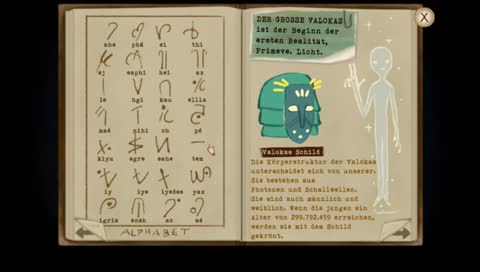 ahe phá si thi
ej emphi hei ax
ie hgi kau ellia
maé nihi oh pé
kiyu egre sahe tez
iy iye iyedes yax
igrie eneh ao sé
ALPHABET
DER GROSSE VALOKAS
ist der Beginn der
ersten Realität,
Primeve. Licht.
Valokas Schild
Die Körperstruktur der Valokas
unterscheidet sich von unserer.
Sie bestehen aus
Photonen und Schallwellen.
Sie sind auch männlich und
weiblich. Wenn die jungen ein
Alter von 299.792.459 erreichen,
werden sie mit dem Schild
gekrönt.
X